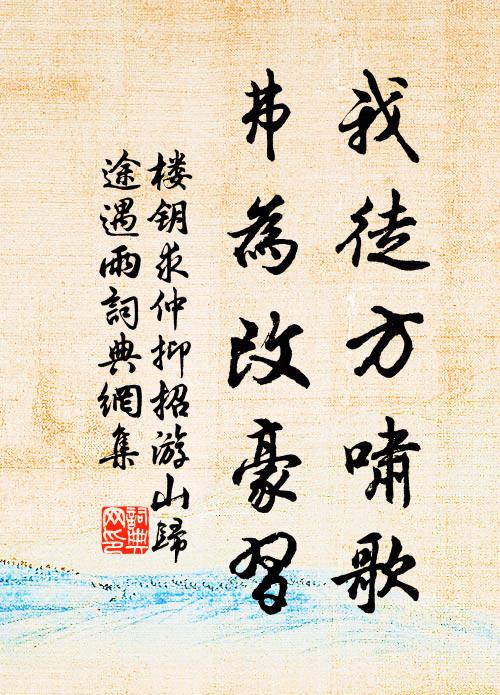 我徒方啸歌
弗為改豪習
楼钥求仲抑招游山歸
途遇雨詞典網集
詞典網印